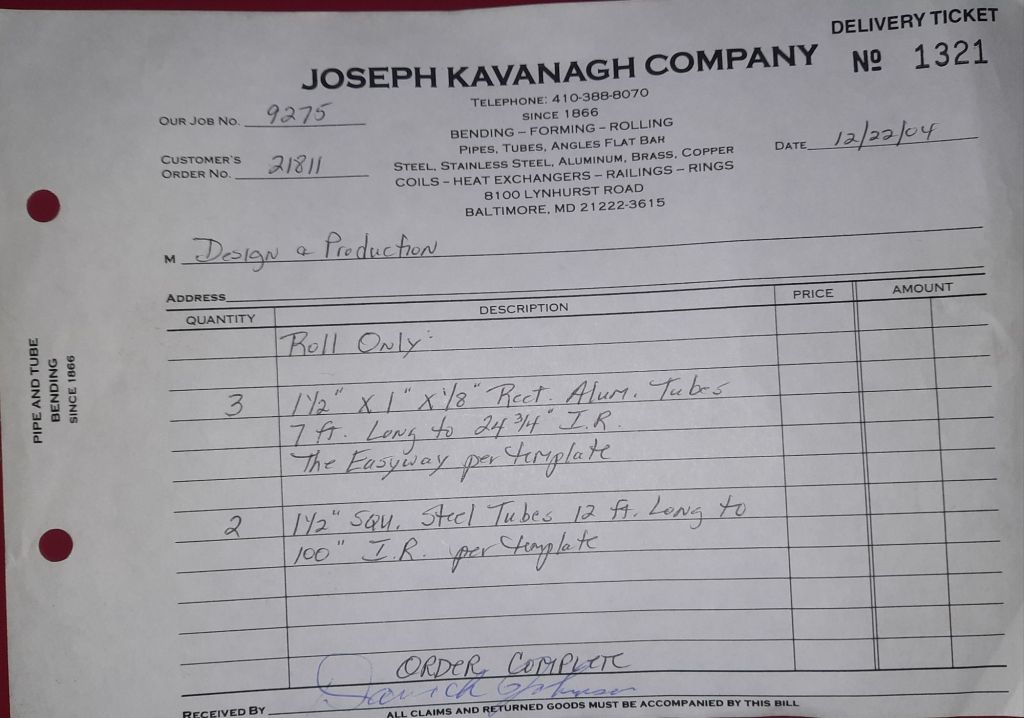 DELIVERY TICKET
Nº 1321
JOSEPH KAVANAGH COMPANY
TELEPHONE: 410-388-8070
SINCE 1866
BENDING – FORMING – ROLLING
PIPES, TUBES, ANGLES FLAT BAR
STEEL, STAINLESS STEEL, ALUMINUM, BRASS, COPPER
COILS – HEAT EXCHANGERS – RAILINGS – RINGS
8100 LYNHURST ROAD
BALTIMORE, MD 21222-3615
OUR JOB NO. 9275
CUSTOMER'S
ORDER NO. 21811
DATE 12/22/04
M Design & Production
ADDRESS
QUANTITY DESCRIPTION PRICE AMOUNT
Roll Only:
3 1 1/2" X 1" X 1/8" Rect. Alum. Tubes
7 ft. Long to 24 3/4" I.R.
The Easyway per template
2 1 1/2" Squ. Steel Tubes 12 ft. Long to
100" I.R. per template
ORDER COMPLETE
RECEIVED BY
ALL CLAIMS AND RETURNED GOODS MUST BE ACCOMPANIED BY THIS BILL
PIPE AND TUBE
BENDING
SINCE 1866